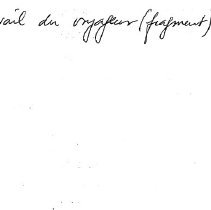 vail du voyageur (fragment)